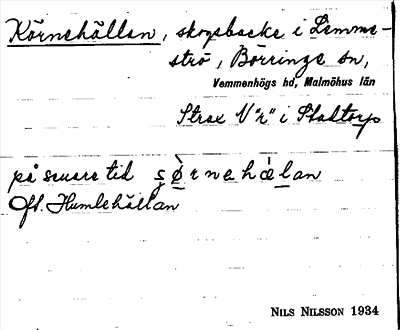 Körnehällan, skogsbacke i Lemme-
strö, Börringe sn,
Vemmenhögs hd, Malmöhus län
Strax V "r" i Staltorp
på senare tid şø̀rnehȧlan
Jfr. Humlehällan
NILS NILSSON 1934